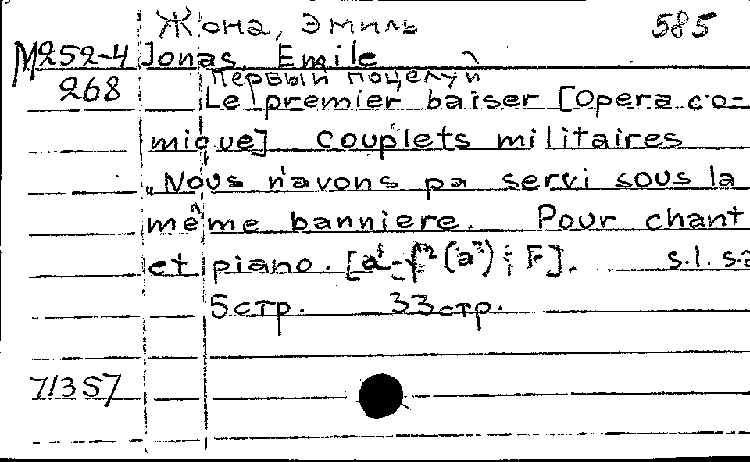 Жона, Эмиль 585
М252-4 Jonas, Emile
Первый поцелуй
268 Le premier baiser [Opera co-
mique] Couplets militaires
„Nous n'avons pa servi sous la
même banniere. Pour chant
et piano. [a¹-f²(a³); F]. s.l. s.a
5стр. 33стр.
71357